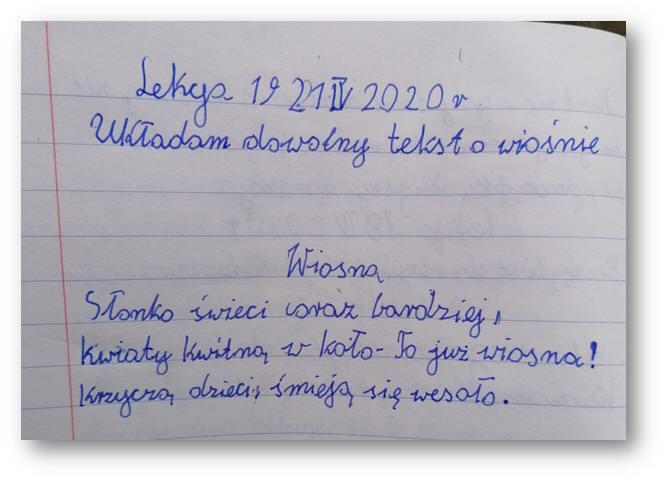 Lekcja 19 21 IV 2020 r
Układam dowolny tekst o wiośnie
Wiosna
Słonko świeci coraz bardziej,
kwiaty kwitną w koło- To już wiosna!
krzyczą dzieci, śmieją się wesoło.